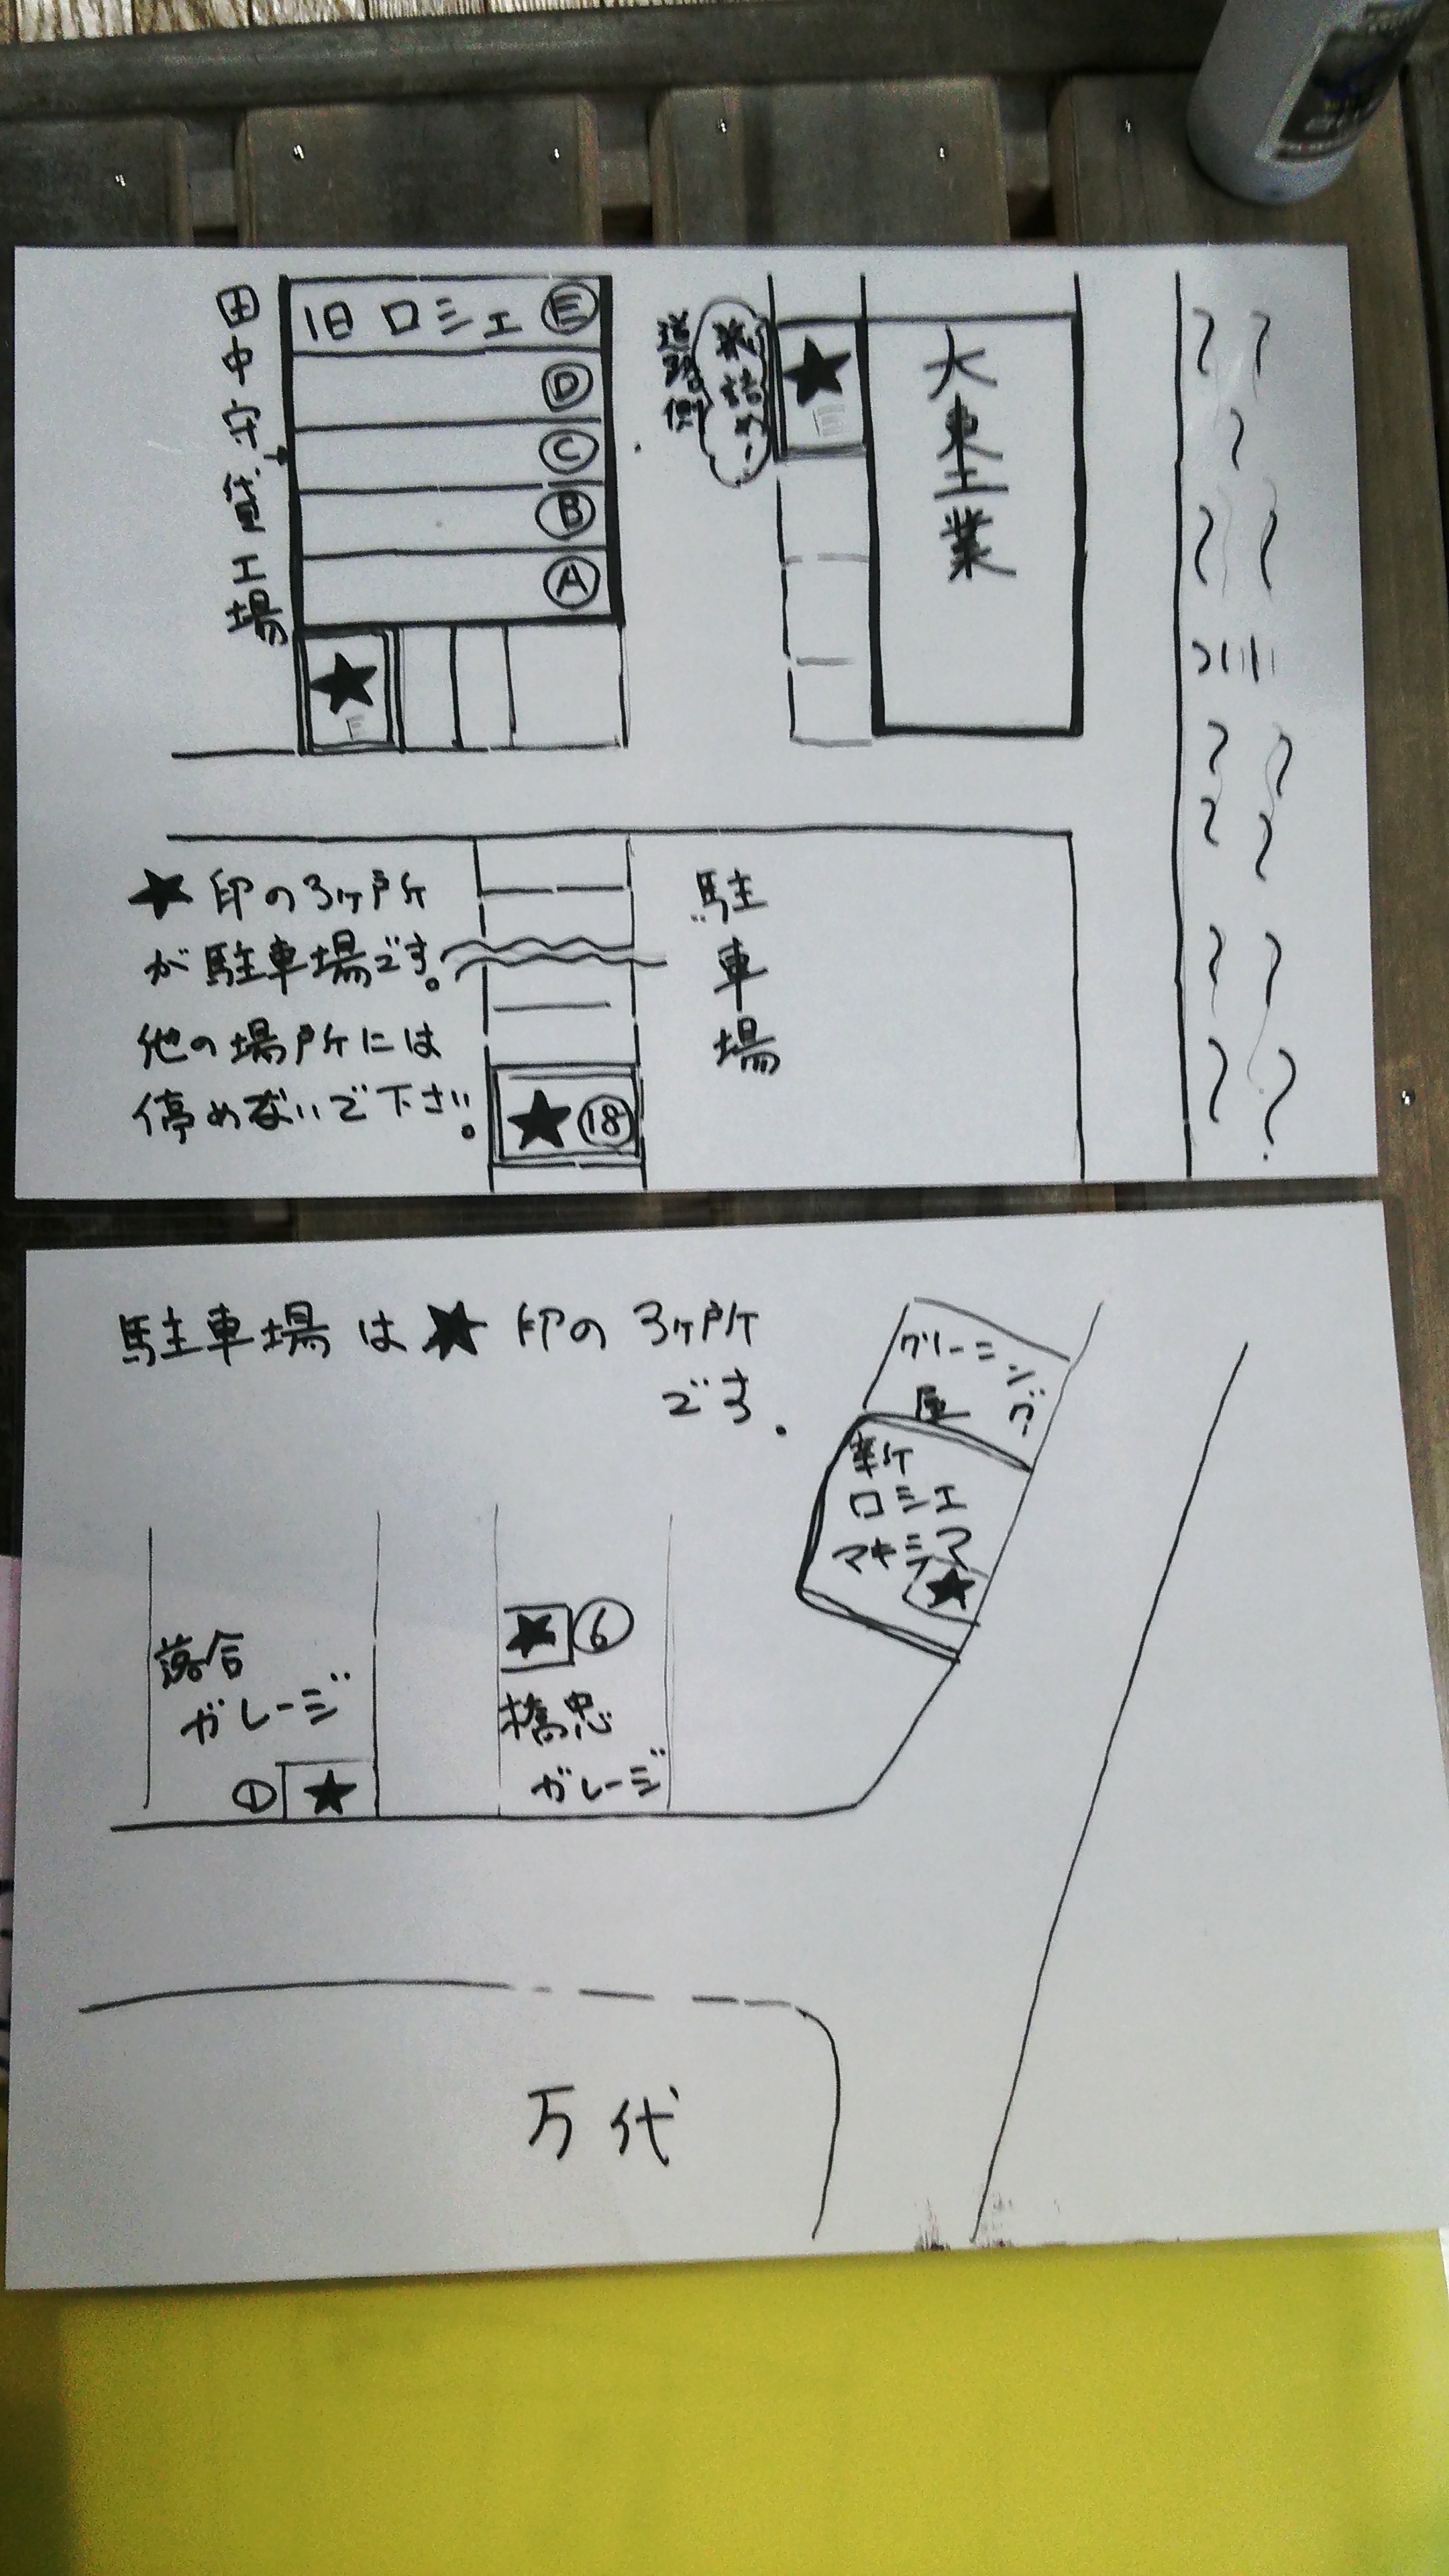 田中守貸工場
旧ロシェ Ⓔ
Ⓓ
Ⓒ
Ⓑ
Ⓐ
★
E
道路側
★
E
大東工業
★印の3ヶ所
が駐車場です。
他の場所には
停めないで下さい。
★⑱
駐車場
駐車場は★印の3ヶ所
です.
クリーニング
屋
新
ロシェ
マキシマ
★
★⑥
橋忠
ガレージ
落合
ガレージ
①★
万代